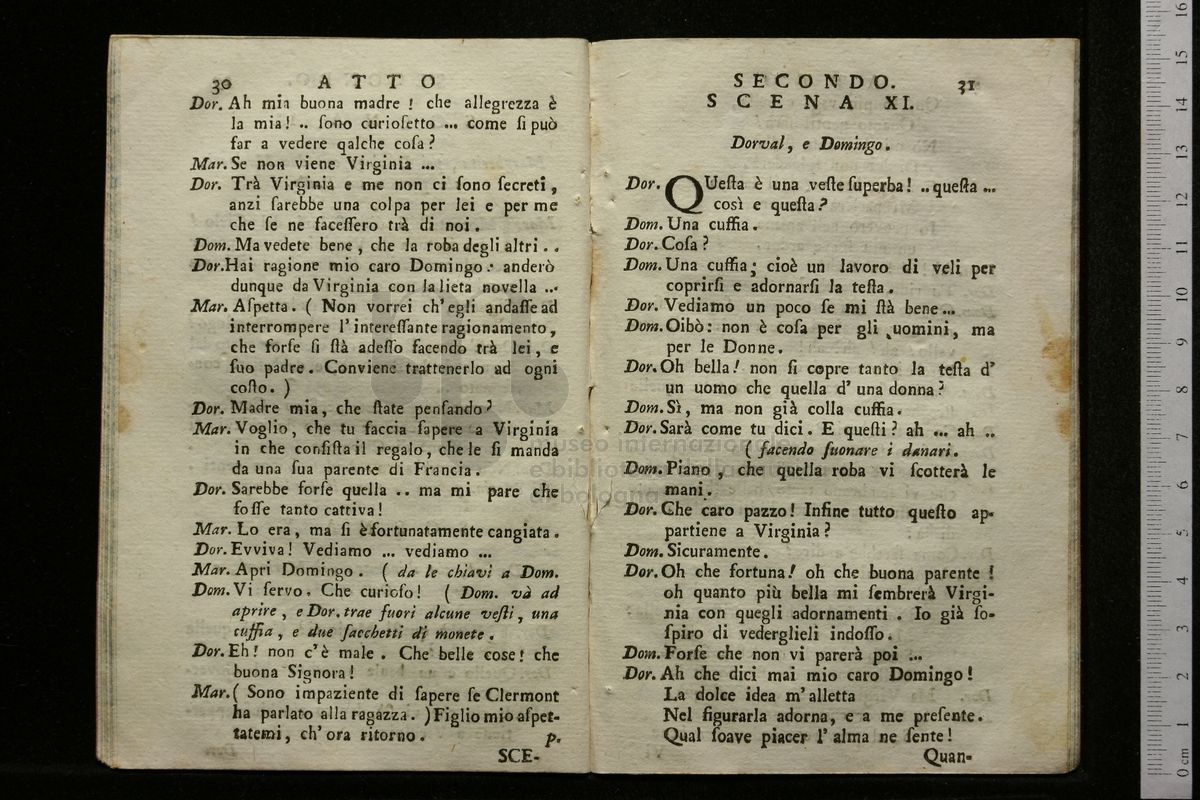 30 ATTO
Dor. Ah mia buona madre! che allegrezza è
la mia! .. ſono curioſetto ... come ſi può
far a vedere qalche coſa?
Mar. Se non viene Virginia ...
Dor. Trà Virginia e me non ci ſono ſecreti,
anzi ſarebbe una colpa per lei e per me
che ſe ne faceſſero trà di noi.
Dom. Ma vedete bene, che la roba degli altri ..
Dor. Hai ragione mio caro Domingo: anderò
dunque da Virginia con la lieta novella ...
Mar. Aſpetta. ( Non vorrei ch'egli andaſſe ad
interrompere l'intereſſante ragionamento,
che forſe ſi ſtà adeſſo facendo trà lei, e
ſuo padre. Conviene trattenerlo ad ogni
coſto. )
Dor. Madre mia, che ſtate penſando?
Mar. Voglio, che tu faccia ſapere a Virginia
in che conſiſta il regalo, che le ſi manda
da una ſua parente di Francia.
Dor. Sarebbe forſe quella .. ma mi pare che
foſſe tanto cattiva!
Mar. Lo era, ma ſi è fortunatamente cangiata.
Dor. Evviva! Vediamo ... vediamo ...
Mar. Apri Domingo. ( da le chiavi a Dom.
Dom. Vi ſervo. Che curioſo! ( Dom. và ad
aprire, e Dor. trae fuori alcune veſti, una
cuffia, e due ſacchetti di monete.
Dor. Eh! non c'è male. Che belle cose! che
buona Signora!
Mar. ( Sono impaziente di ſapere ſe Clermont
ha parlato alla ragazza. ) Figlio mio aſpet-
tatemi, ch'ora ritorno. p.
SCE-
SECONDO. 31
SCENA XI.
Dorval, e Domingo.
Dor. QUeſta è una veſte ſuperba! .. queſta ...
così e queſta?
Dom. Una cuffia.
Dor. Coſa?
Dom. Una cuffia; cioè un lavoro di veli per
coprirſi e adornarſi la teſta.
Dor. Vediamo un poco ſe mi ſtà bene...
Dom. Oibò: non è coſa per gli uomini, ma
per le Donne.
Dor. Oh bella! non ſi copre tanto la teſta d'
un uomo che quella d'una donna?
Dom. Sì, ma non già colla cuffia.
Dor. Sarà come tu dici. E queſti? ah ... ah ..
( facendo ſuonare i danari.
Dom. Piano, che quella roba vi ſcotterà le
mani.
Dor. Che caro pazzo! Infine tutto queſto ap-
partiene a Virginia?
Dom. Sicuramente.
Dor. Oh che fortuna! oh che buona parente!
oh quanto più bella mi ſembrerà Virgi-
nia con quegli adornamenti. Io già ſo-
ſpiro di vederglieli indoſſo.
Dom. Forſe che non vi parerà poi ...
Dor. Ah che dici mai mio caro Domingo!
La dolce idea m'alletta
Nel figurarla adorna, e a me preſente.
Qual ſoave piacer l'alma ne ſente!
Quan-
museo internazionale
e biblioteca della musica
bologna
0 cm 1 2 3 4 5 6 7 8 9 10 11 12 13 14 15 16